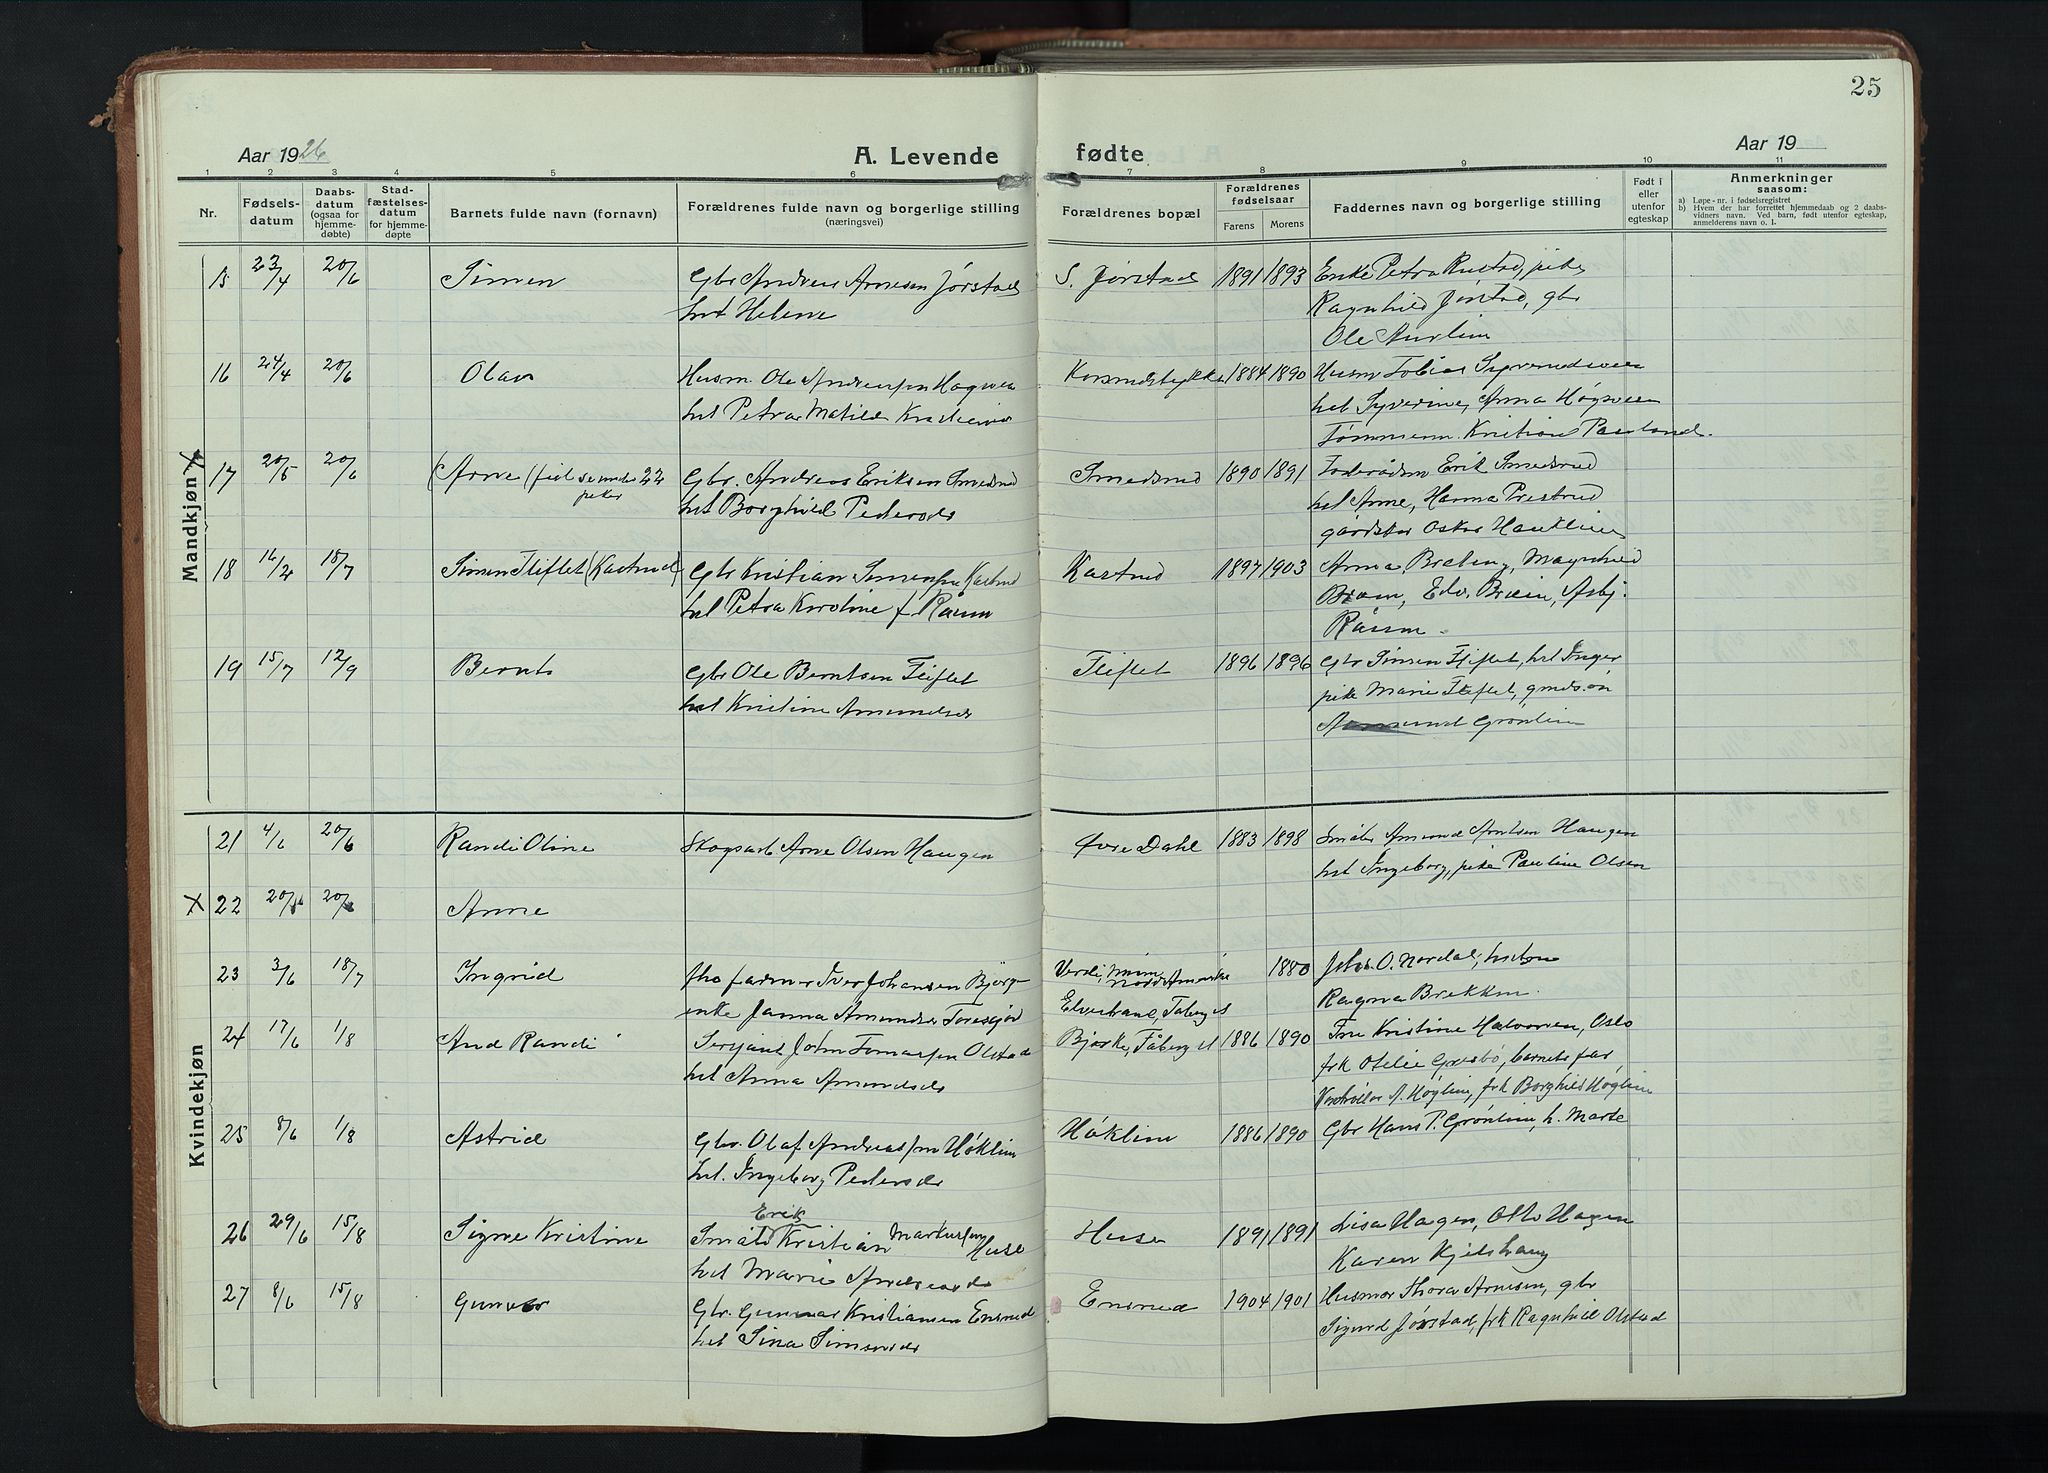 25
Aar 1926
A. Levende
fødte
Aar 19
1 2 3 4 5 6 7 8 9 10 11
Nr.
Fødselsdatum
Daabsdatum (ogsaa for hjemmedøbte)
Stadfæstelsesdatum for hjemmedøpte
Barnets fulde navn (fornavn)
Forældrenes fulde navn og borgerlige stilling
(næringsvei)
Forældrenes bopæl
Forældrenes fødselsaar
Farens Morens
Faddernes navn og borgerlige stilling
Født i eller utenfor egteskap
Anmerkninger
saasom:
a) Løpe-nr. i fødselsregistret
b) Hvem der har forrettet hjemmedaab og 2 daabsvidners navn. Ved barn, født utenfor egteskap, anmelderens navn o. l.
Mandkjøn
15 23/4 20/6 Simen Gbr Andreas Arnesen Jørstad S. Jørstad 1891 1893 Enke Petra Rustad, pike
hst Helene Ragnhild Jørstad, gbr
Ole Aurlien
16 24/4 20/6 Olav Husm. Ole Andreassen Høgsveen 1884 1890 Husm Tobias Syverudsveen
hst Petra Matilde hst Syverine, Anna Høgsveen
Tømmerm. Kristian
X 17 20/5 20/6 (Arne (feil se under 22 Gbr. Andreas Eriksen Smedsrud Smedsrud 1890 1891 Erik Smedsrud
piker hst Borghild Pedersdr hst Anne, Hanna Prestrud
Oskar Hauklien
18 16/2 18/7 Simen Fliflet (Kastrud) Gbr Kristian Simensen Kastrud Kastrud 1897 1903 Anna Breting, Magnhild
hst Petra Karoline f. Råum Edv. Bræin, Asbj.
Råum.
19 15/7 12/9 Bernt Gbr Ole Berntsen Fliflet Fliflet 1896 1896 Gbr Simen Fliflet, hst Inger
hst Kristine Amundsdr pike Marie Fliflet, gmds.ön
Amund Grønlien
Kvindekjøn
21 4/6 20/6 Randi Oline Skogsarb Arne Olsen Haugen Øvre Dahl 1883 1898 Småbr Amund Arntsen Haugen
hst Ingeborg, pike Pauline Olsen
X 22 20/5 20/6 Anne
23 3/6 18/7 Ingrid farmer Iver Johansen Bjørge Verdi, Minn, Nord Amerika 1880 Johs. O. Nordal, hustru
enke Janna Amundsdr Elvestrand, Fåberg st Ragna Brekken.
24 17/6 1/8 Aud Randi Serjant John Tomassen Olstad Bjørke, Fåberg st 1886 1890 Fru Kristine Halvorsen, Oslo
hst Anna Amundsdr frk Otelie barnets far
A. Høglien, frk Borghild Høglien
25 8/6 1/8 Astrid Gbr. Olaf Andreassen Høklien Høklien 1886 1890 Gbr Hans P. Grønlien, h. Marte
hst. Ingeborg Pedersdr
26 29/6 15/8 Signe Kristine Småbr Erik Kristian Markussen Huse Huse 1891 1891 Lisa Hagen, Otto Hagen
hst Marie Andreasdr Karen Kjelshaug
27 8/6 15/8 Gunvor Gbr. Gunnar Kristiansen Ensrud Ensrud 1904 1901 Husmor Thora Arnesen, gbr
hst Sina Simensdr Sigurd Jørstad, frk Ragnhild Olstad